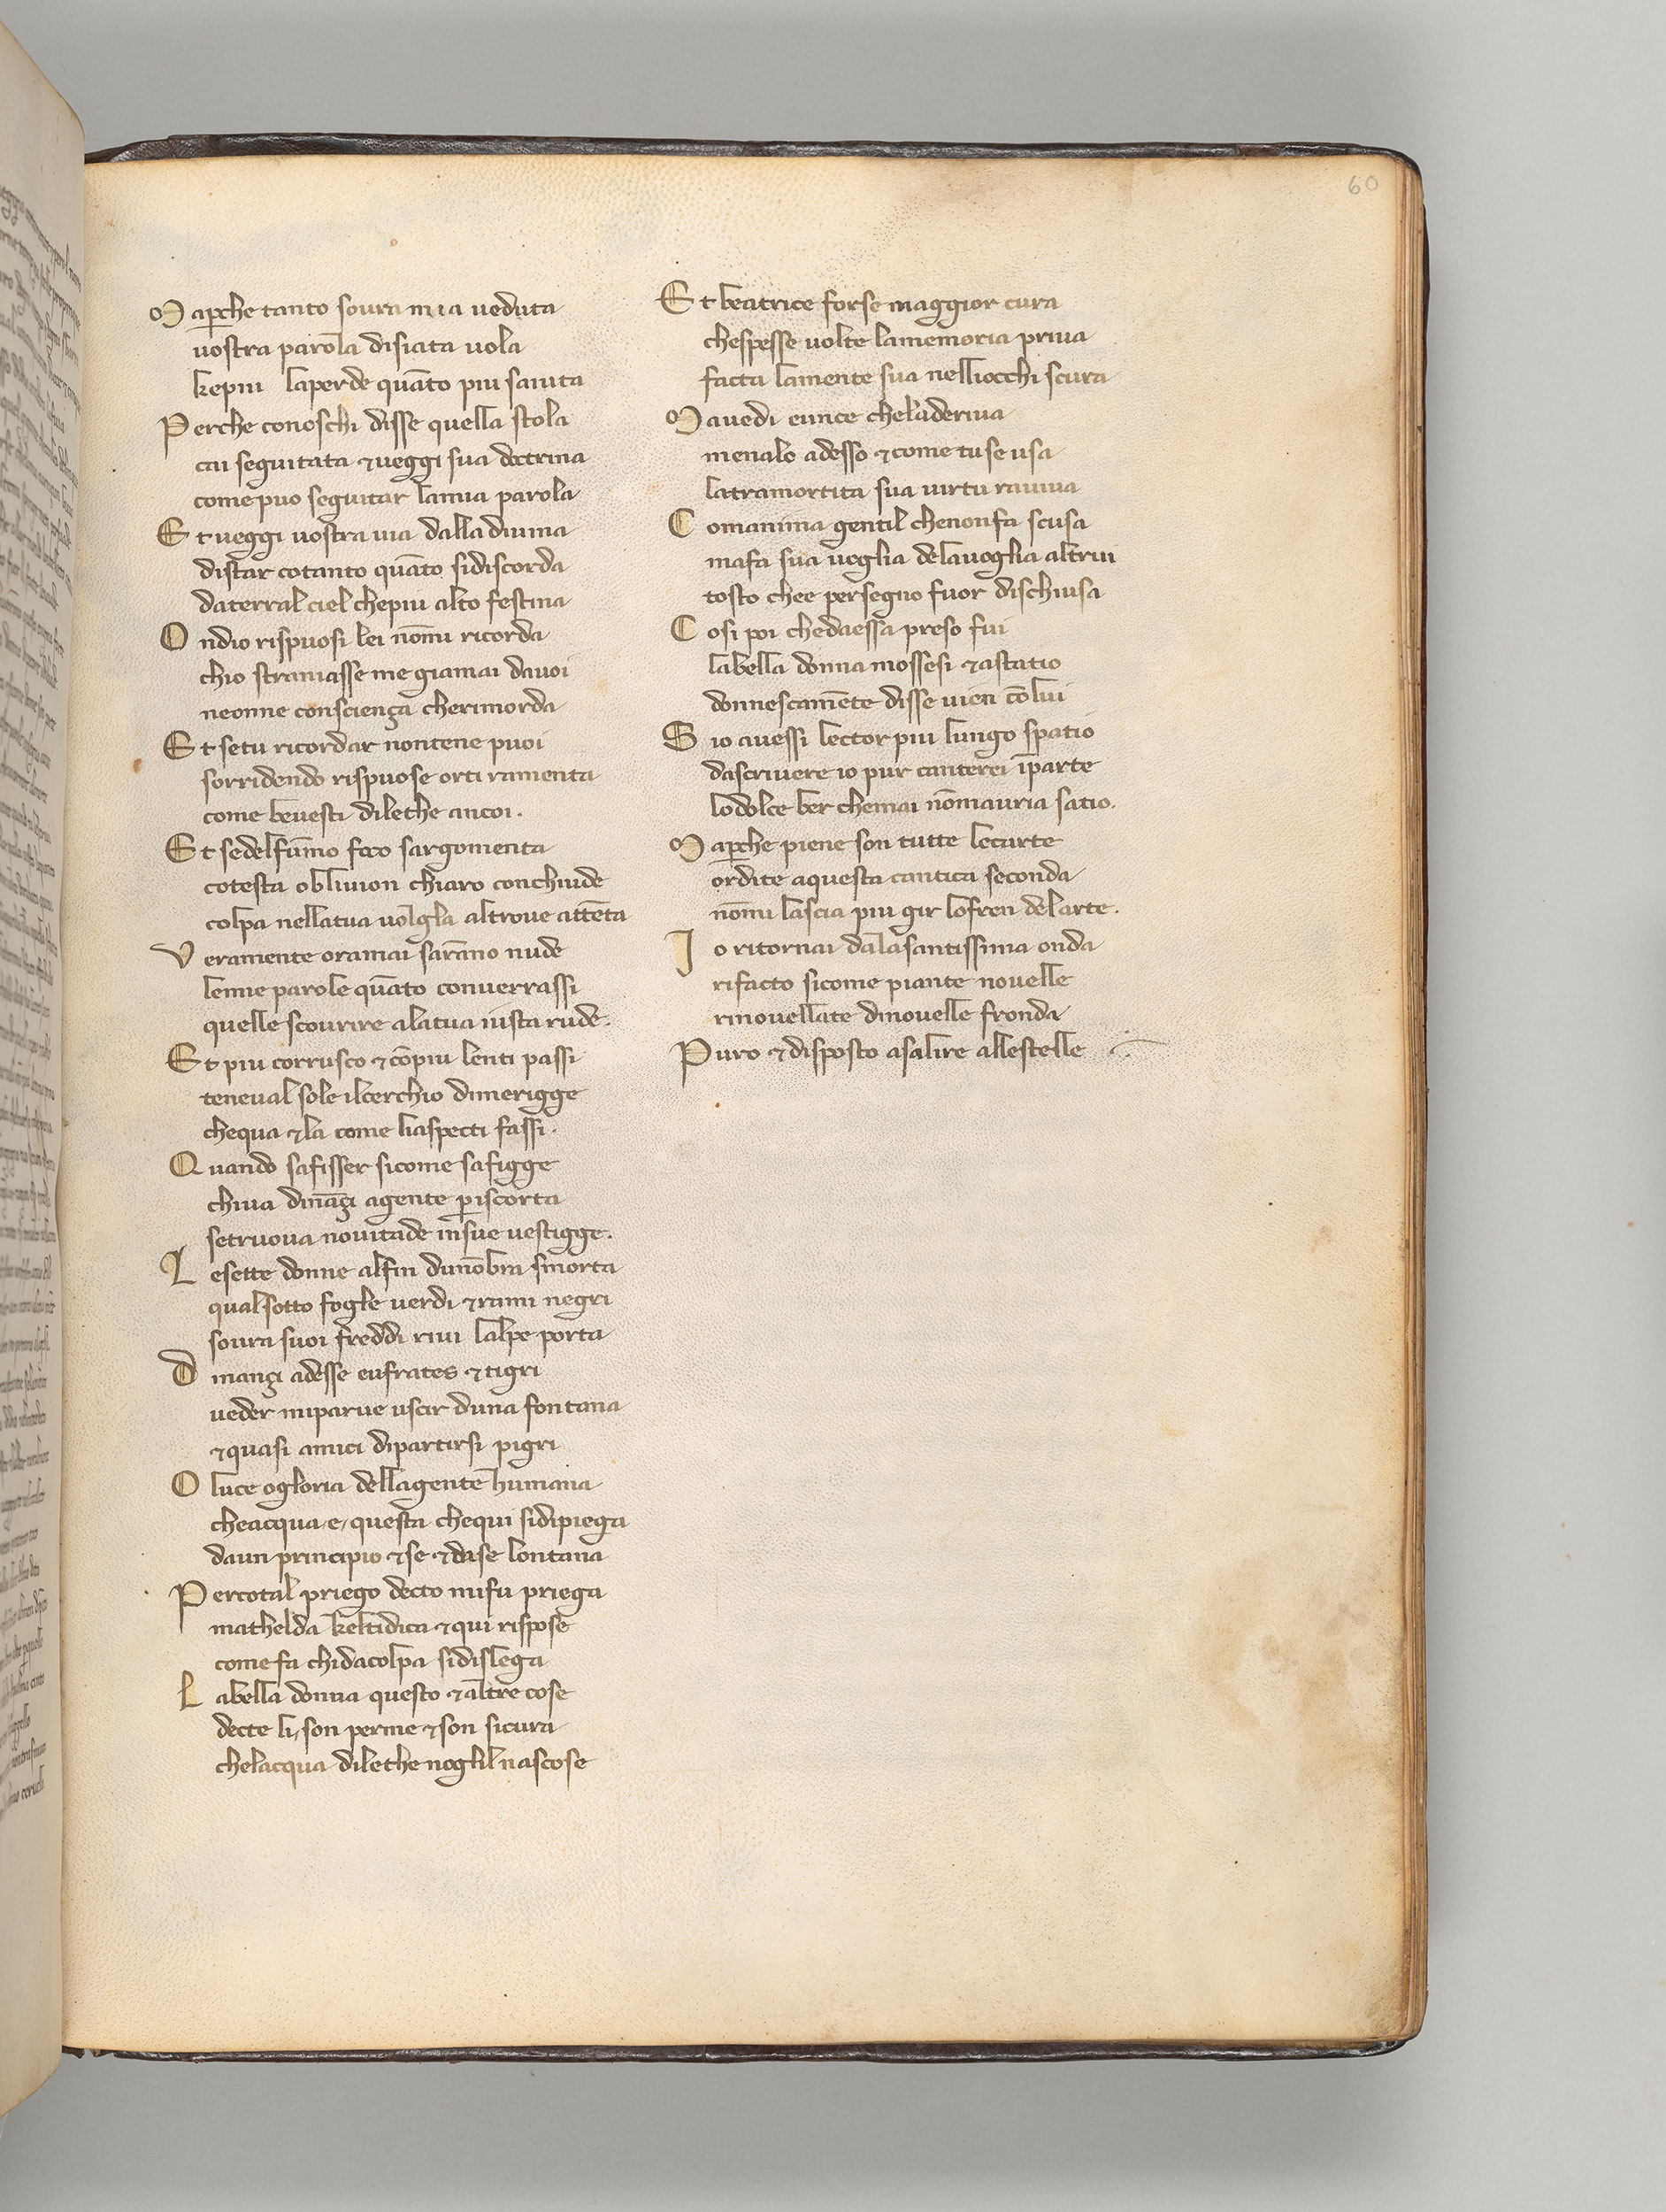 60
M ap̲che tanto soura mia ueduta
uostra parola disiata uola
kepiu laperde quāto piu saiuta
P erche conoschi disse quella scola
cai seguitata ⁊ueggi sua doctrina
come puo seguitar lamia parola
E t ueggi uostra uia dalla diuina
distar cotanto quāto sidiscorda
daterral ciel chepiu alto festina
O ndio rispuosi lei nōmi ricorda
chio straniasse me giamai dauoi
neonne conscienza cherimorda
E t setu ricordar nontene puoi
sorridendo rispuose orti ramenta
come beuesti dilethe ancoi.
E t sedelfūmo foco sargomenta
cotesta obliuion chiaro conchiude
colpa nellatua uolgla altroue attēta
V eramente oramai sarāno nude
lemie parole quāto conuerrassi
quelle scourire alatua uista rude.
E t piu corrusco ⁊cōpiu lenti passi
teneual sole ilcerchio dimerigge
chequa ⁊la come liaspecti fassi.
Q uando safisser sicome safigge
chiua dināzi agente p̲iscorta
setruoua nouitade insue uestigge.
L esette donne alfin dunōbra smorta
qual sotto fogle uerdi ⁊rami negri
soura suoi freddi riui lalpe porta
D inanzi adesse eufrates ⁊tigri
ueder miparue uscir duna fontana
⁊quasi amici dipartirsi pigri
O luce ogloria dellagente humana
cheacqua e questa chequi sidipiega
daun principio ⁊se ⁊dase lontana
P ercotal priego decto mifu priega
mathelda keltidica ⁊qui rispose
come fa chidacolpa sidislega
L abella donna questo ⁊altre cose
decte li son perme ⁊son sicura
chelacqua dilethe noglil nascose
E t beatrice forse maggior cura
chespesse uolte lamemoria priua
facta lamente sua nelliocchi scura
M auedi eunoe cheladeriua
menalo adesso ⁊come tuse usa
latramortita sua uirtu rauiua
C omanima gentil chenonfa scusa
mafa sua uoglia delauoglia altrui
tosto chee persegno fuor dischiusa
C osi poi chedaessa preso fui
labella donna mossesi ⁊astatio
donnescamēte disse uien cōlui
S io auessi lector piu lungo spatio
dascriuere io pur canterei īparte
lodolce ber chemai nōmauria satio.
M ap̲che piene son tutte lecarte
ordite aquesta cantica seconda
nōmi lascia piu gir lofren delarte.
I o ritornai dalasantissima onda
rifacto sicome piante nouelle
rinouellate dinouelle fronda
P uro ⁊disposto asalire allestelle